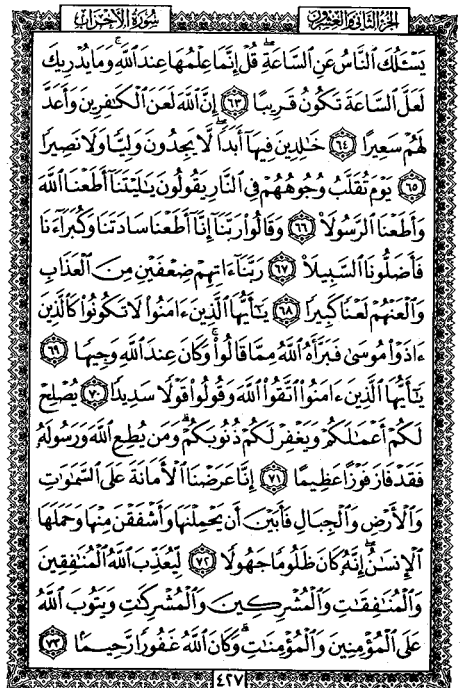 الجزء الثاني والعشرون
سُورَةُ الأَحْزَاب
يَسْـَٔلُكَ ٱلنَّاسُ عَنِ ٱلسَّاعَةِۖ قُلْ إِنَّمَا عِلْمُهَا عِندَ ٱللَّهِۚ وَمَا يُدْرِيكَ
لَعَلَّ ٱلسَّاعَةَ تَكُونُ قَرِيبًا ٦٣ إِنَّ ٱللَّهَ لَعَنَ ٱلْكَٰفِرِينَ وَأَعَدَّ
لَهُمْ سَعِيرًا ٦٤ خَٰلِدِينَ فِيهَآ أَبَدًاۖ لَّا يَجِدُونَ وَلِيًّا وَلَا نَصِيرًا
٦٥ يَوْمَ تُقَلَّبُ وُجُوهُهُمْ فِي ٱلنَّارِ يَقُولُونَ يَٰلَيْتَنَآ أَطَعْنَا ٱللَّهَ
وَأَطَعْنَا ٱلرَّسُولَا۠ ٦٦ وَقَالُوا۟ رَبَّنَآ إِنَّآ أَطَعْنَا سَادَتَنَا وَكُبَرَآءَنَا
فَأَضَلُّونَا ٱلسَّبِيلَا۠ ٦٧ رَبَّنَآ ءَاتِهِمْ ضِعْفَيْنِ مِنَ ٱلْعَذَابِ
وَٱلْعَنْهُمْ لَعْنًا كَبِيرًا ٦٨ يَٰٓأَيُّهَا ٱلَّذِينَ ءَامَنُوا۟ لَا تَكُونُوا۟ كَٱلَّذِينَ
ءَاذَوْا۟ مُوسَىٰ فَبَرَّأَهُ ٱللَّهُ مِمَّا قَالُوا۟ۚ وَكَانَ عِندَ ٱللَّهِ وَجِيهًا ٦٩
يَٰٓأَيُّهَا ٱلَّذِينَ ءَامَنُوا۟ ٱتَّقُوا۟ ٱللَّهَ وَقُولُوا۟ قَوْلًا سَدِيدًا ٧٠ يُصْلِحْ
لَكُمْ أَعْمَٰلَكُمْ وَيَغْفِرْ لَكُمْ ذُنُوبَكُمْۗ وَمَن يُطِعِ ٱللَّهَ وَرَسُولَهُۥ
فَقَدْ فَازَ فَوْزًا عَظِيمًا ٧١ إِنَّا عَرَضْنَا ٱلْأَمَانَةَ عَلَى ٱلسَّمَٰوَٰتِ
وَٱلْأَرْضِ وَٱلْجِبَالِ فَأَبَيْنَ أَن يَحْمِلْنَهَا وَأَشْفَقْنَ مِنْهَا وَحَمَلَهَا
ٱلْإِنسَٰنُۖ إِنَّهُۥ كَانَ ظَلُومًا جَهُولًا ٧٢ لِّيُعَذِّبَ ٱللَّهُ ٱلْمُنَٰفِقِينَ
وَٱلْمُنَٰفِقَٰتِ وَٱلْمُشْرِكِينَ وَٱلْمُشْرِكَٰتِ وَيَتُوبَ ٱللَّهُ
عَلَى ٱلْمُؤْمِنِينَ وَٱلْمُؤْمِنَٰتِۗ وَكَانَ ٱللَّهُ غَفُورًا رَّحِيمًا ٧٣
٤٢٧